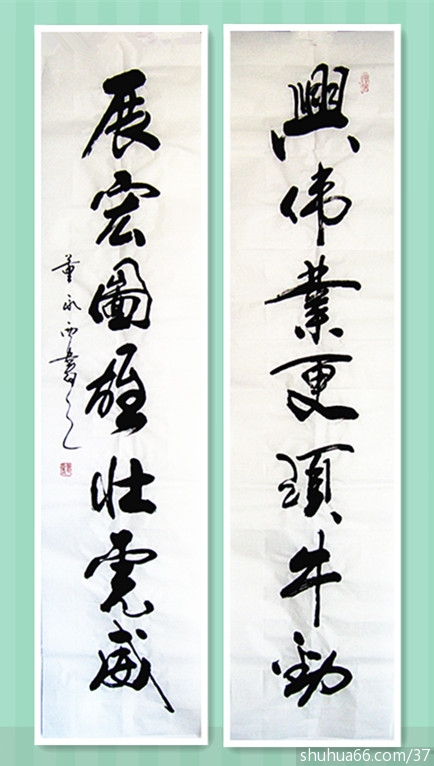 興伟業更須牛勁
展宏圖雄壮虎威
董永西書
shuhua66.com/37